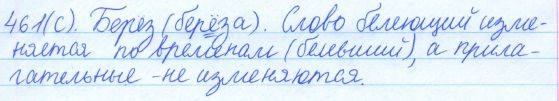 461(с). Берез (берёза). Слово белеющий изме-
няется по временам (белевший), а прила-
гательные - не изменяются.